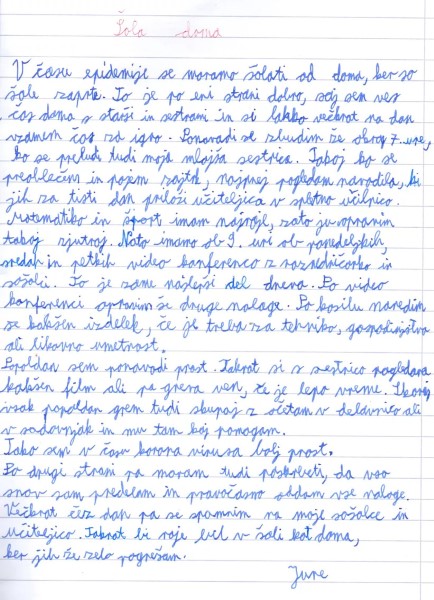 Šola doma
V času epidemije se moramo šolati od doma, ker so
šole zaprte. To je po eni strani dobro, saj sem ves
čas doma s starši in sestrami in si lahko večkrat na dan
vzamem čas za igro. Ponavadi se zbudim že okrog 7. ure,
ko se prebudi tudi moja mlajša sestrica. Takoj ko se
preoblečem in pojem zajtrk, najprej pogledam navodila, ki
jih za tisti dan priloži učiteljica v spletno učilnico.
Matematiko in šport imam najraje, zato ju opravim
takoj zjutraj. Nato imamo ob 9. uri ob ponedeljkih,
sredah in petkih video konferenco z razredničarko in
sošolci. To je zame najlepši del dneva. Po video
konferenci opravim še druge naloge. Po kosilu naredim
še kakšen izdelek, če je treba za tehniko, gospodinjstvo
ali likovno umetnost.
Popoldan sem ponavadi prost. Takrat si s sestrico pogledava
kakšen film ali pa greva ven, če je lepo vreme. Skoraj
vsak popoldan grem tudi skupaj z očetom v delavnico ali
v sadovnjak in mu tam kaj pomagam.
Tako sem v času korona virusa bolj prost.
Po drugi strani pa moram tudi poskrbeti, da vso
snov sam predelam in pravočasno oddam vse naloge.
Večkrat čez dan pa se spomnim na moje sošolce in
učiteljico. Takrat bi raje bil v šoli kot doma,
ker jih že zelo pogrešam.
Jure